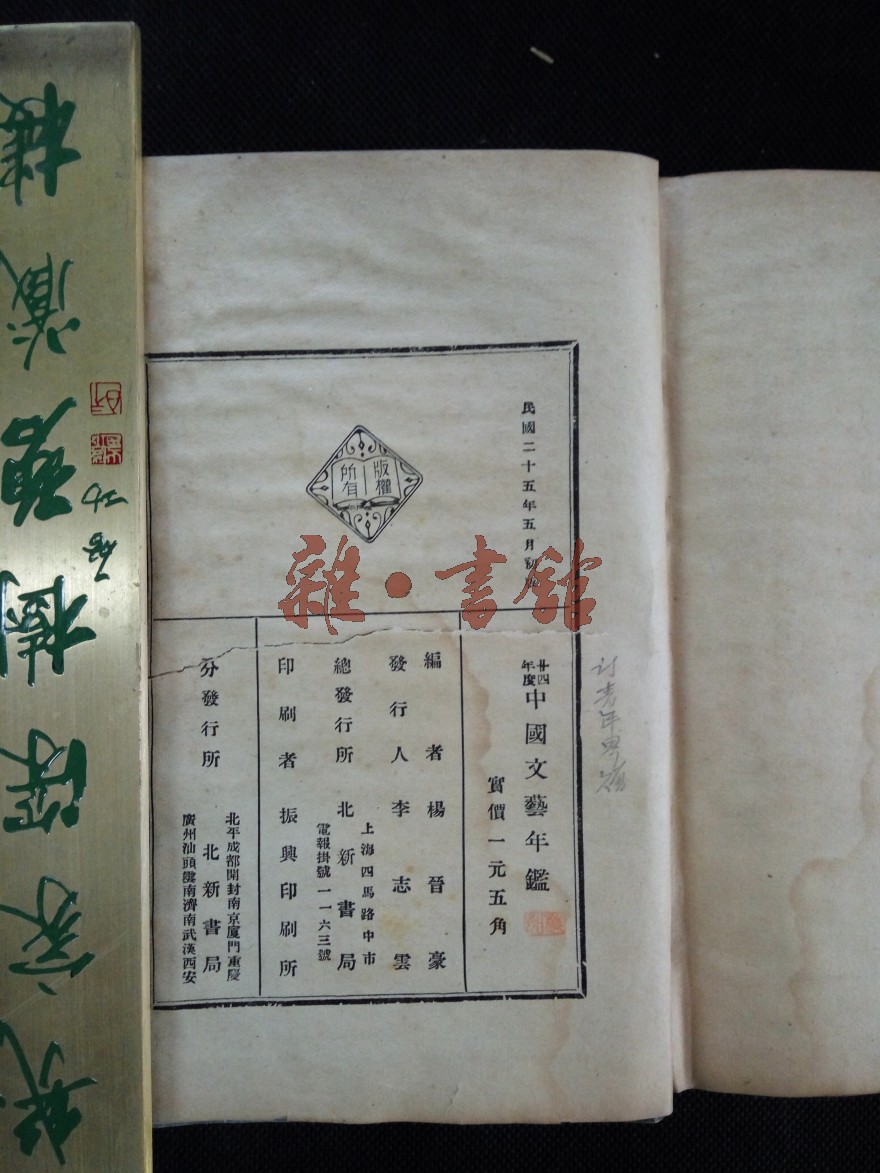 民國二十五年五月初版
版權
所有
廿四
年度
中國文藝年鑑
實價一元五角
編者楊晉豪
發行人李志雲
上海四馬路中市
總發行所北新書局
電報掛號一一六三號
印刷者振興印刷所
北平成都開封南京厦門重慶
分發行所北新書局
廣州汕頭雲南濟南武漢西安
雜·書館